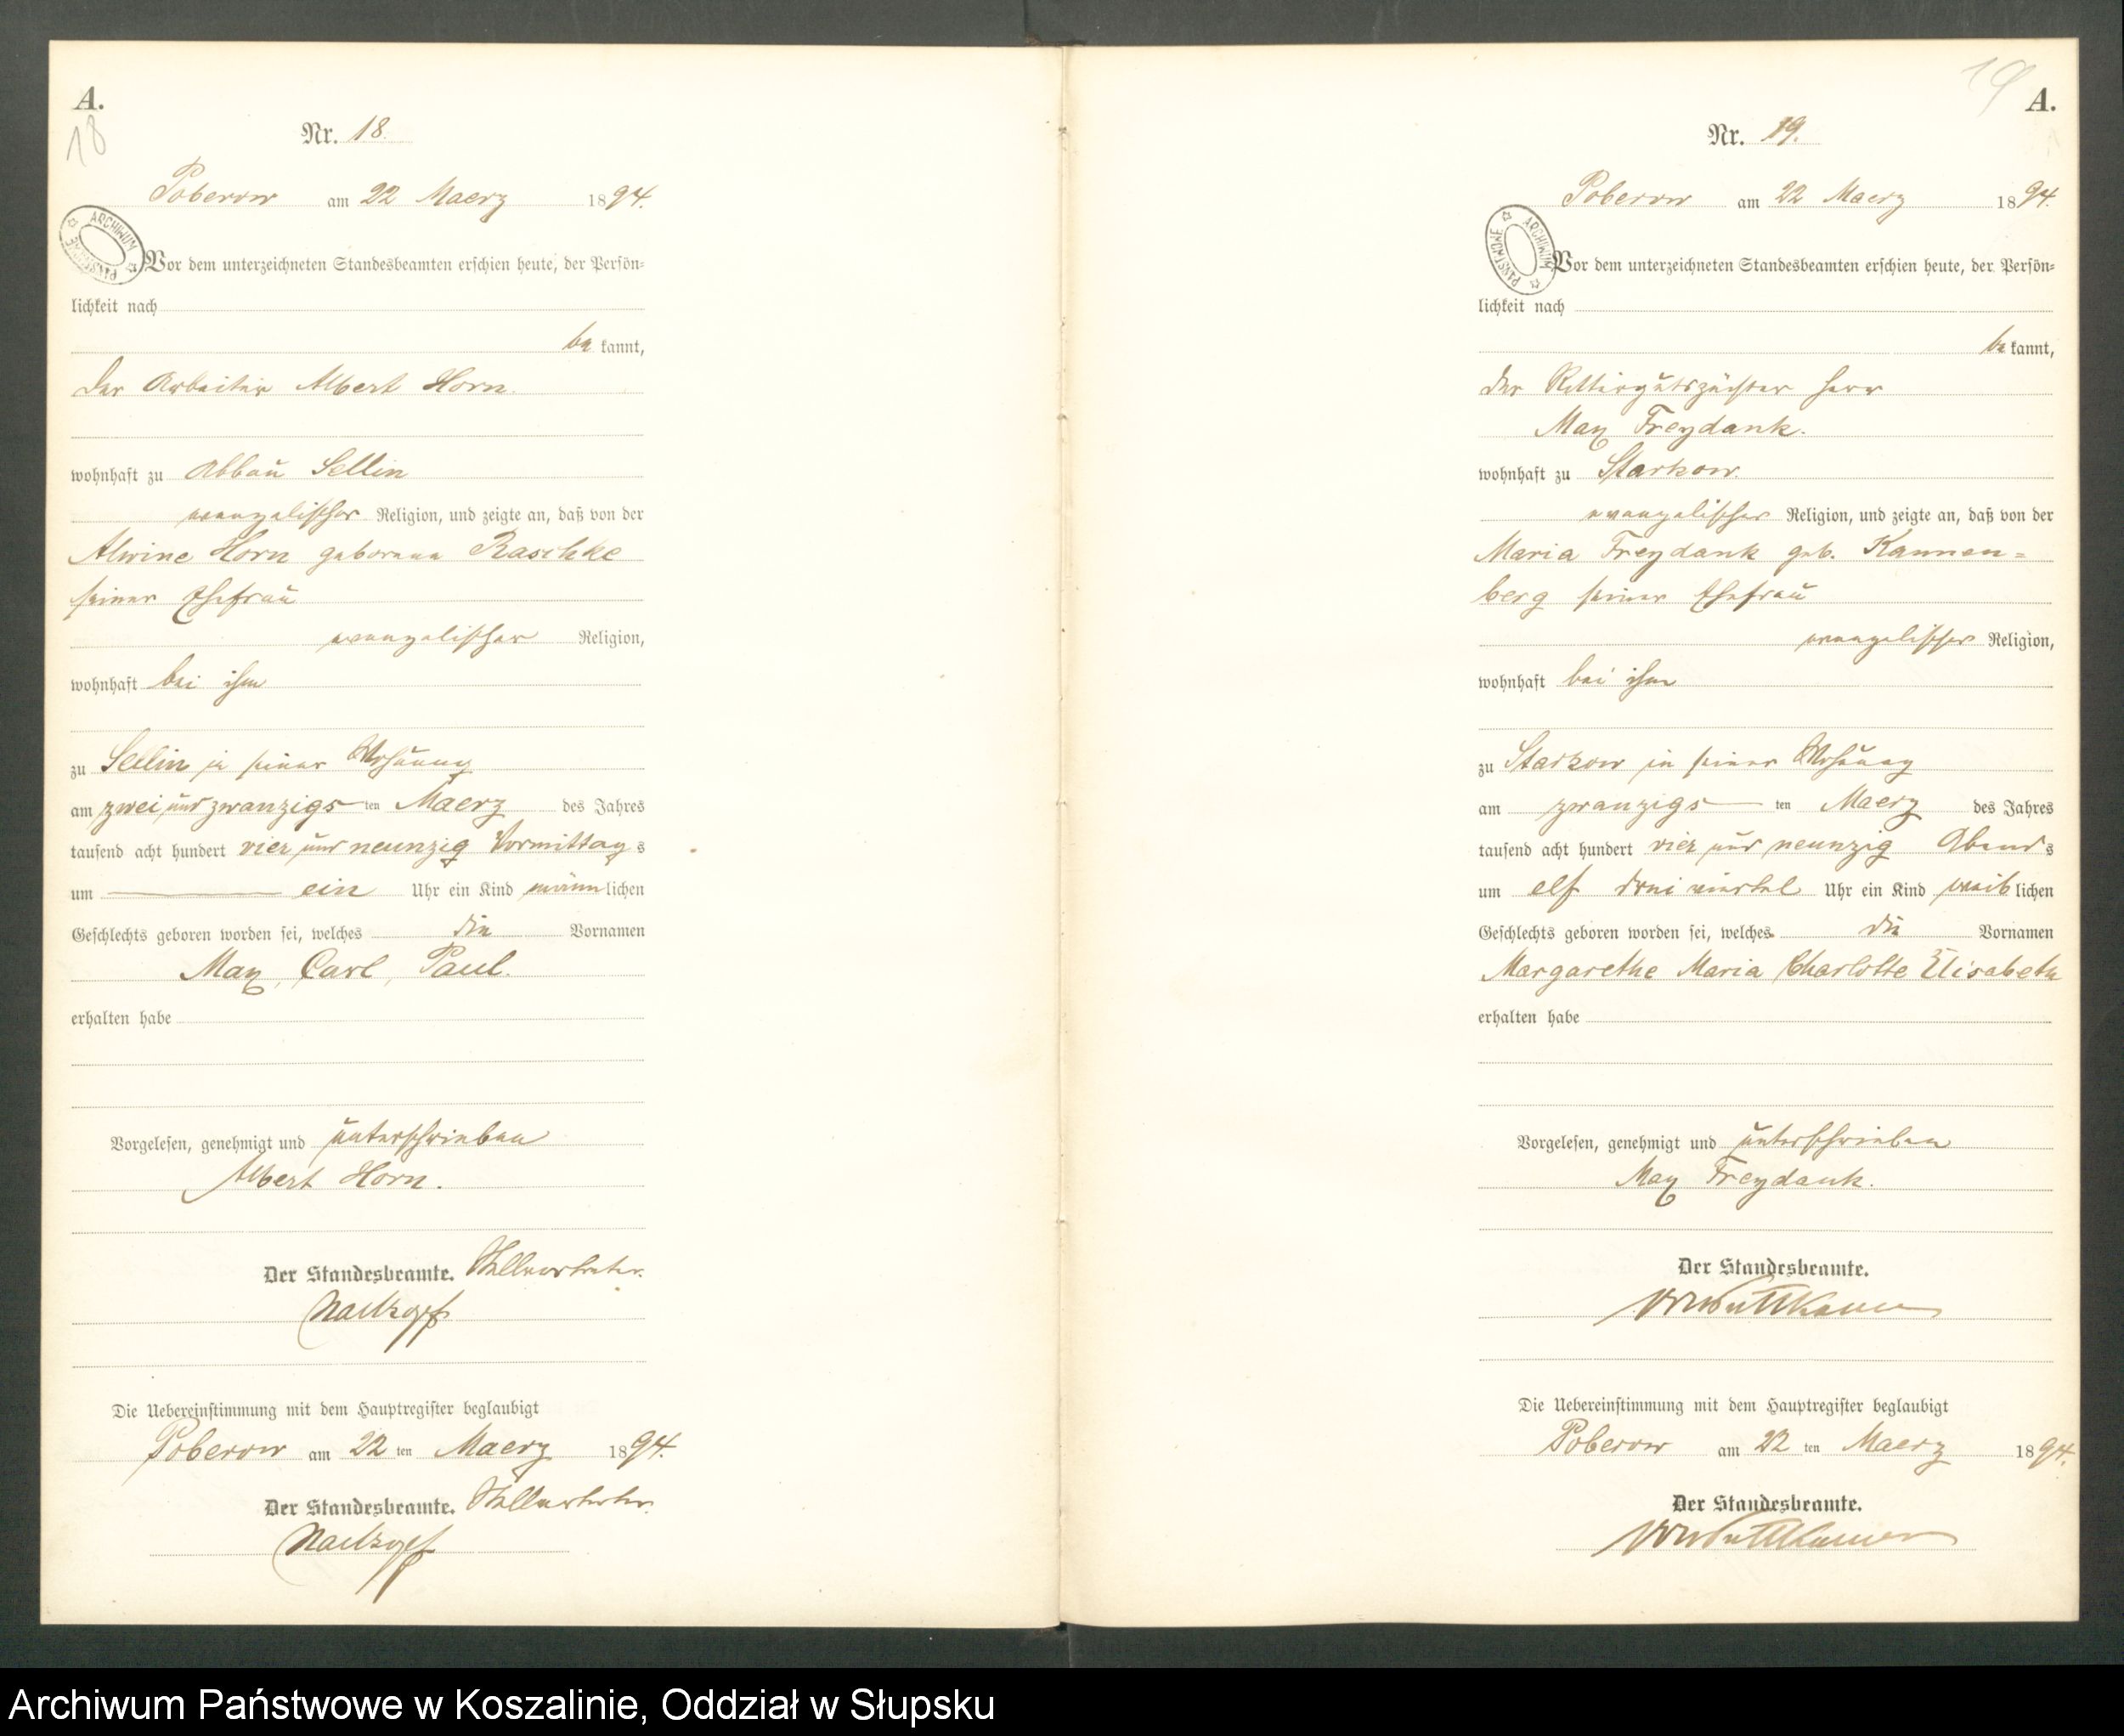 A.
18
Nr. 18.
Poberow am 22 Maerz 1894.
ARCHIWUM PAŃSTWOWE
Vor dem unterzeichneten Standesbeamten erschien heute, der Persön=
lichkeit nach
bekannt,
der Arbeiter Albert Horn.
wohnhaft zu Abbau Sellin
evangelischer Religion, und zeigte an, daß von der
Alwine Horn geborenen Raschke
seiner Ehefrau
evangelischer Religion,
wohnhaft bei ihm
zu Sellin in seiner Wohnung
am zwei und zwanzigsten Maerz des Jahres
tausend acht hundert vier und neunzig Vormittags
um ein Uhr ein Kind männlichen
Geschlechts geboren worden sei, welches die Vornamen
Max, Carl, Paul.
erhalten habe
Vorgelesen, genehmigt und unterschrieben
Albert Horn.
Der Standesbeamte. Stellvertreter.
Die Uebereinstimmung mit dem Hauptregister beglaubigt
Poberow am 22 ten Maerz 1894.
Der Standesbeamte. Stellvertreter.
19
A.
Nr. 19.
Poberow am 22 Maerz 1894.
ARCHIWUM PAŃSTWOWE
Vor dem unterzeichneten Standesbeamten erschien heute, der Persön=
lichkeit nach
bekannt,
der Herr
Max Freydank.
wohnhaft zu Starkow.
evangelischer Religion, und zeigte an, daß von der
Maria Freydank geb. Kannen=
berg seiner Ehefrau
evangelischer Religion,
wohnhaft bei ihm
zu Starkow in seiner Wohnung
am zwanzigsten Maerz des Jahres
tausend acht hundert vier und neunzig Abends
um elf drei viertel Uhr ein Kind weiblichen
Geschlechts geboren worden sei, welches die Vornamen
Margarethe Maria Charlotte Elisabeth
erhalten habe
Vorgelesen, genehmigt und unterschrieben
Max Freydank.
Der Standesbeamte.
von Puttkamer
Die Uebereinstimmung mit dem Hauptregister beglaubigt
Poberow am 22 ten Maerz 1894.
Der Standesbeamte.
von Puttkamer
Archiwum Państwowe w Koszalinie, Oddział w Słupsku